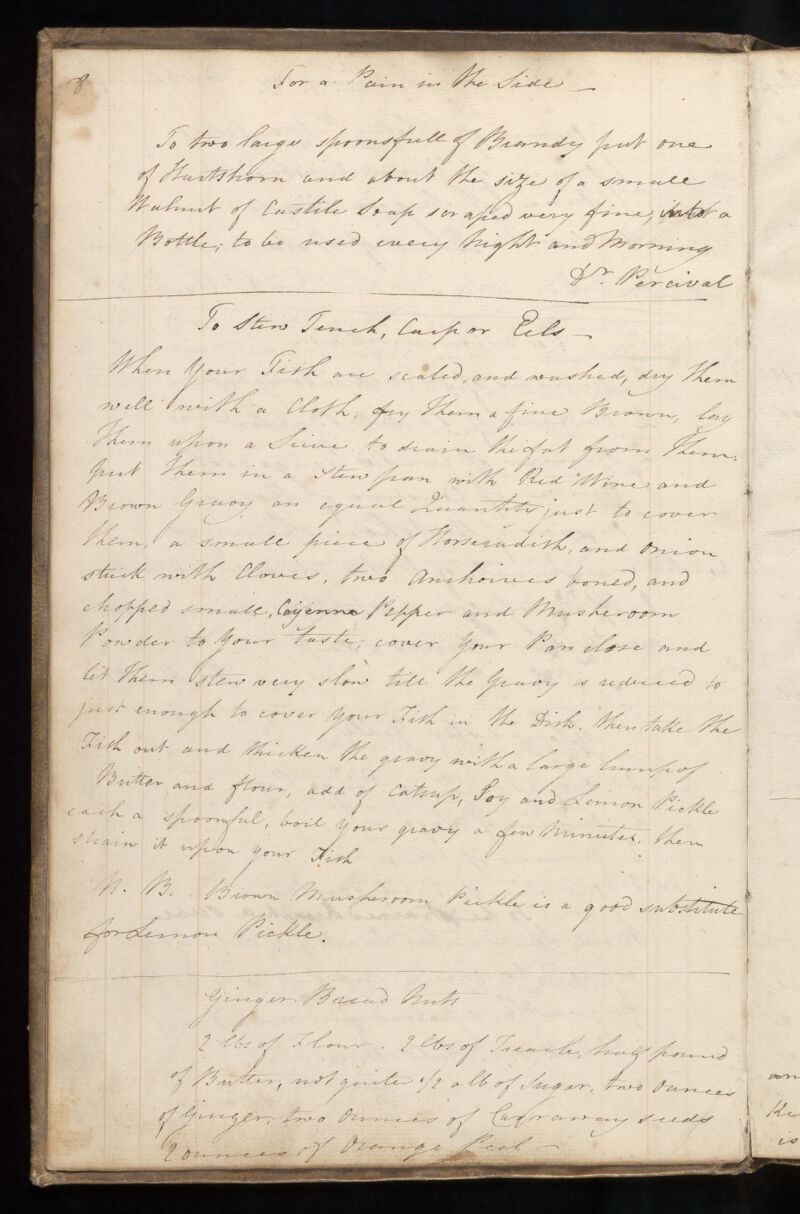 8
For a Pain in the Side
To two large spoonsfull of Brandy put one
of Hartshorn and about the size of a small
Walnut of Castile Soap scraped very fine, into a
Bottle; to be used every Night and Morning
Dr. Percival
To Stew Tench, Carp or Eels
When Your Fish are scaled, and washed, dry them
well with a Cloth, fry them a fine Brown, lay
them upon a Sieve to drain the fat from them.
put them in a stew pan with Red Wine and
Brown Gravy an equal Quantity just to cover
them, a small piece of Horseradish, and Onion
stuck with Cloves, two Anchoives boned, and
chopped small, Cayenne Pepper and Musheroom
Powder to Your taste, cover Your Pan close and
let them stew very slow till the Gravy is reduced to
just enough to cover Your Fish in the Dish. then take the
Fish out and thicken the gravy with a large lump of
Butter and flour, add of Catsup, Soy and Lemon Pickle
each a spoonful, boil your gravy a few Minutes, then
strain it upon your Fish
N. B. Brown Musheroom Pickle is a good substitute
for Lemon Pickle.
Ginger Bread Nuts
2 lbs of Flour. 2 lbs of Treacle, half pound
of Butter, not quite 1/2 a lb of Sugar, two Ounces
of Ginger, two Ounces of Carraway seeds
2 ounces of Orange Peel
is